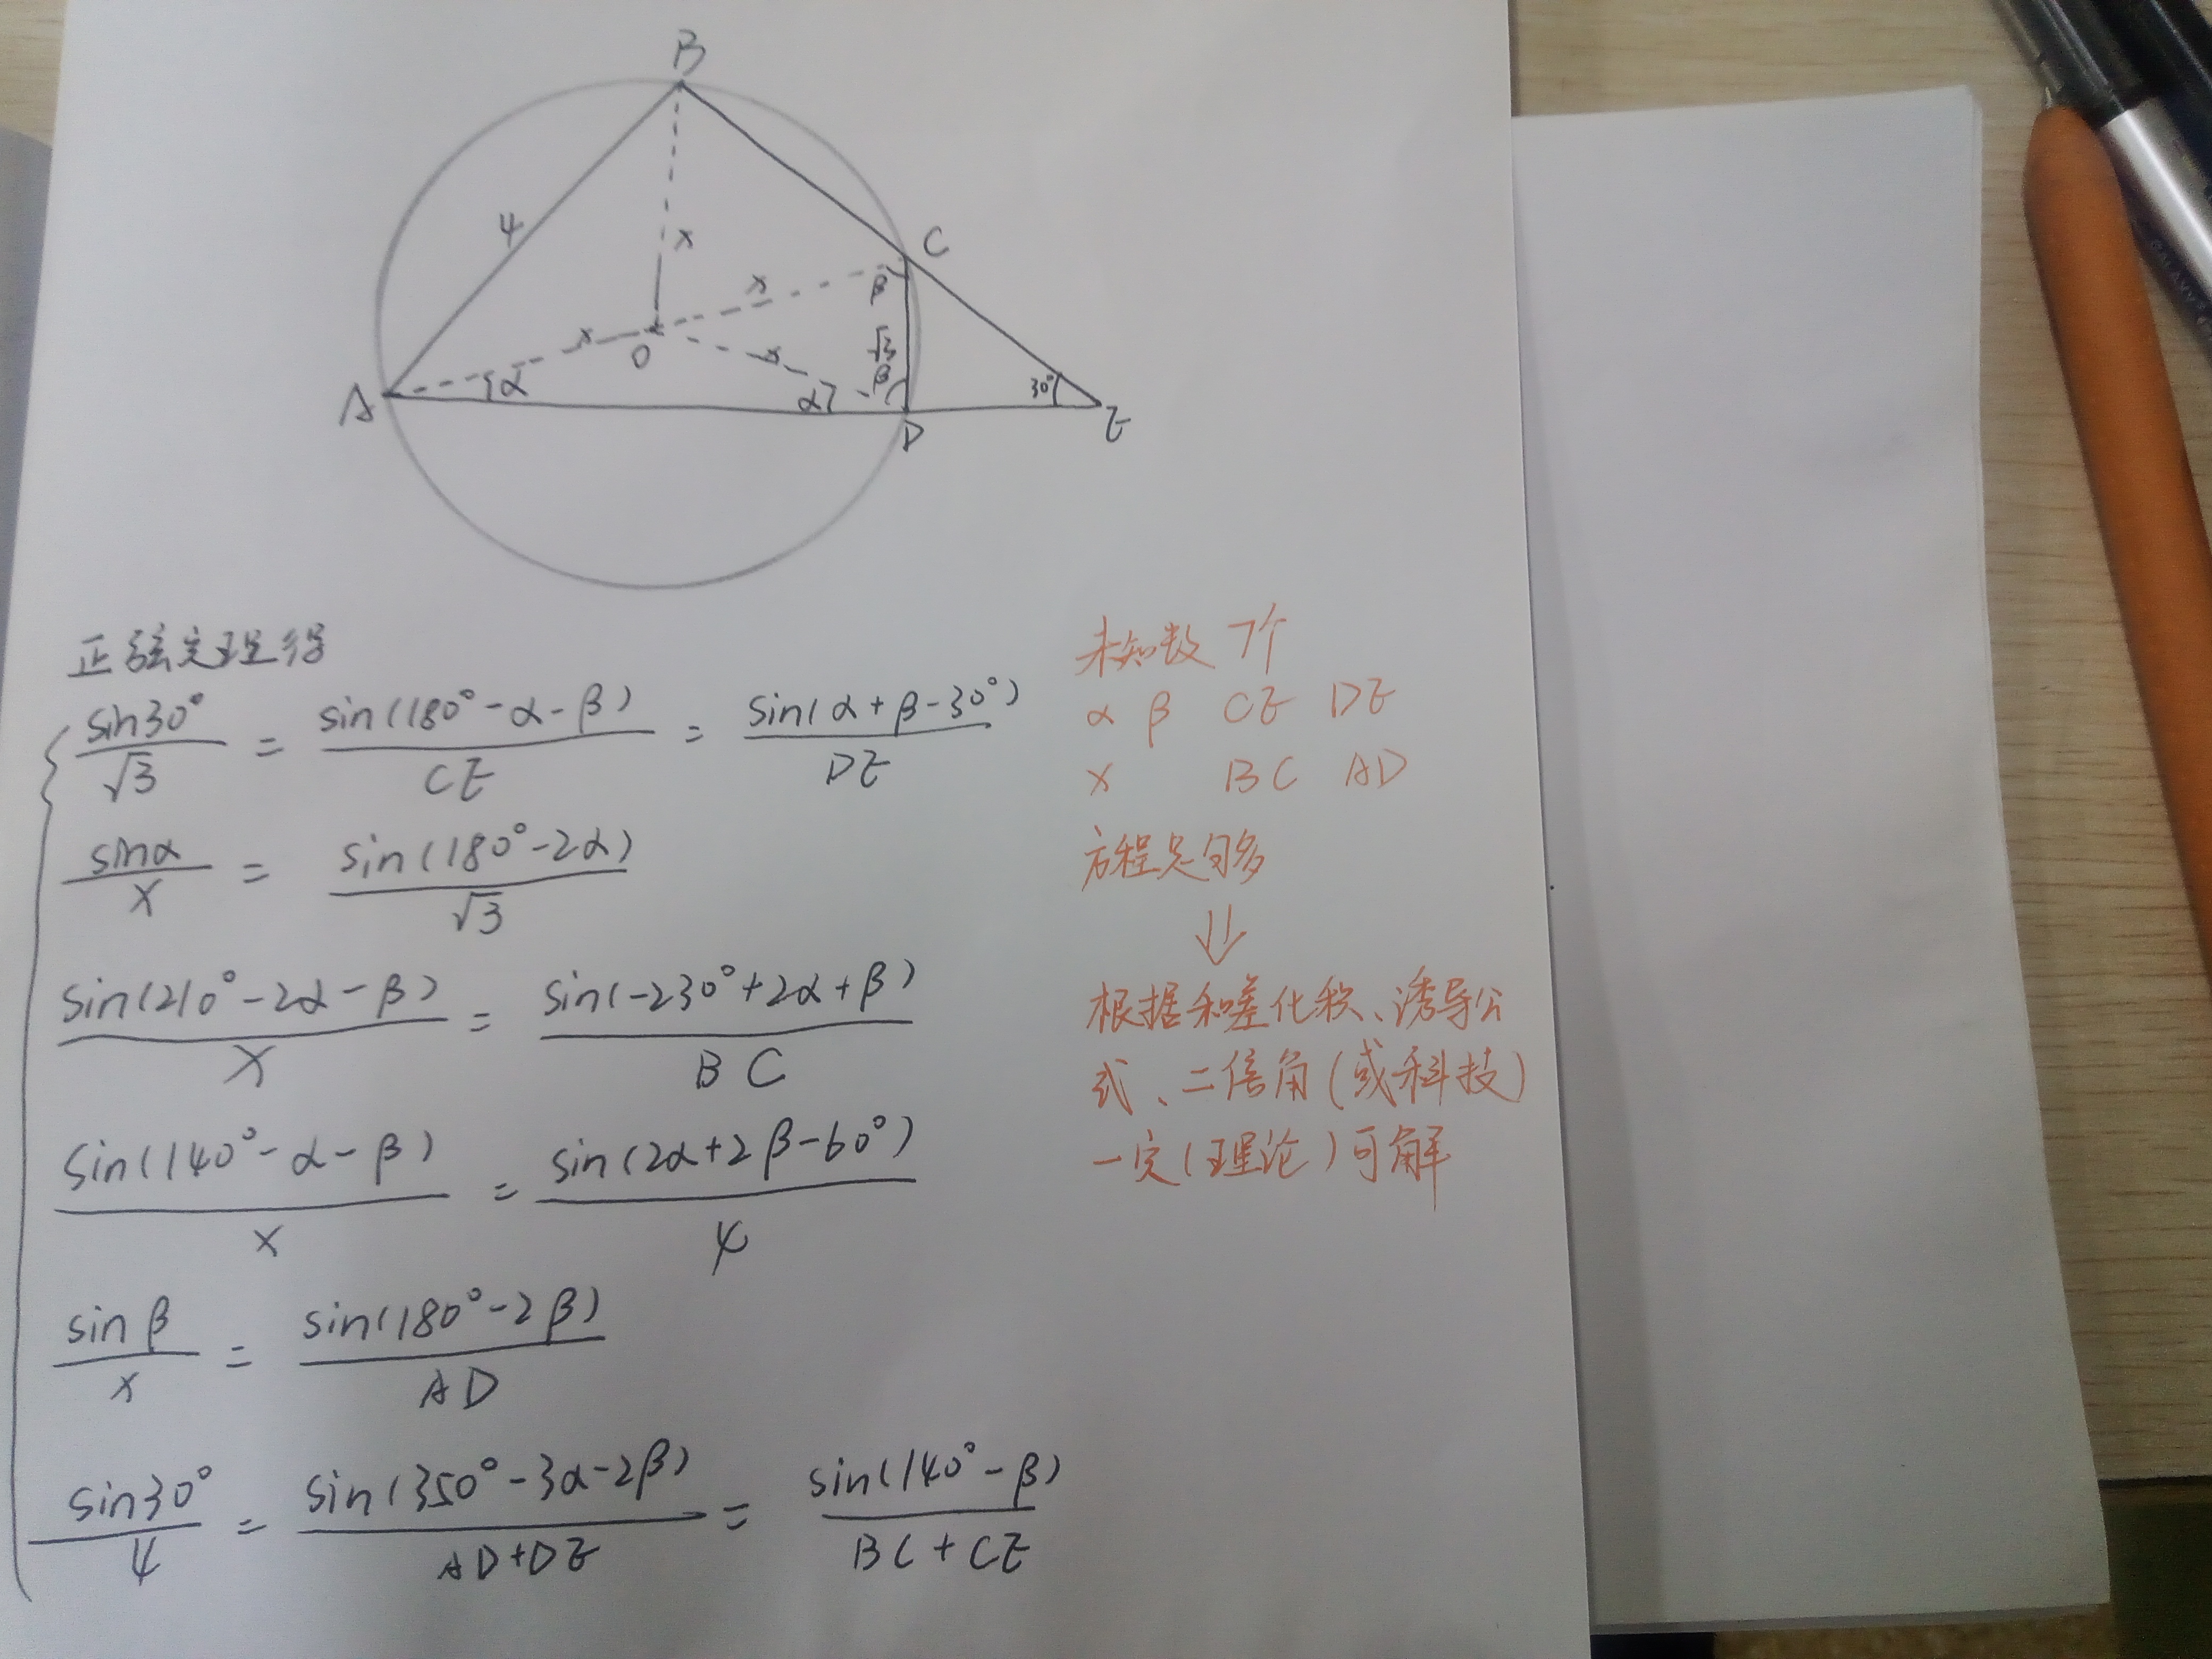 B
4
x
C
x
β
x
O
x
√3
β
α
α
30°
A
D
E
正弦定理得
sin30°/√3 = sin(180°-α-β)/CE = sin(α+β-30°)/DE
sinα/x = sin(180°-2α)/√3
sin(210°-2α-β)/x = sin(-230°+2α+β)/BC
sin(140°-α-β)/x = sin(2α+2β-60°)/4
sinβ/x = sin(180°-2β)/AD
sin30°/4 = sin(350°-3α-2β)/(AD+DE) = sin(140°-β)/(BC+CE)
未知数 7个
α β CE DE
x BC AD
方程足够多
⇓
根据和差化积、诱导公
式、二倍角(或科技)
一定(理论)可解
GALAXY